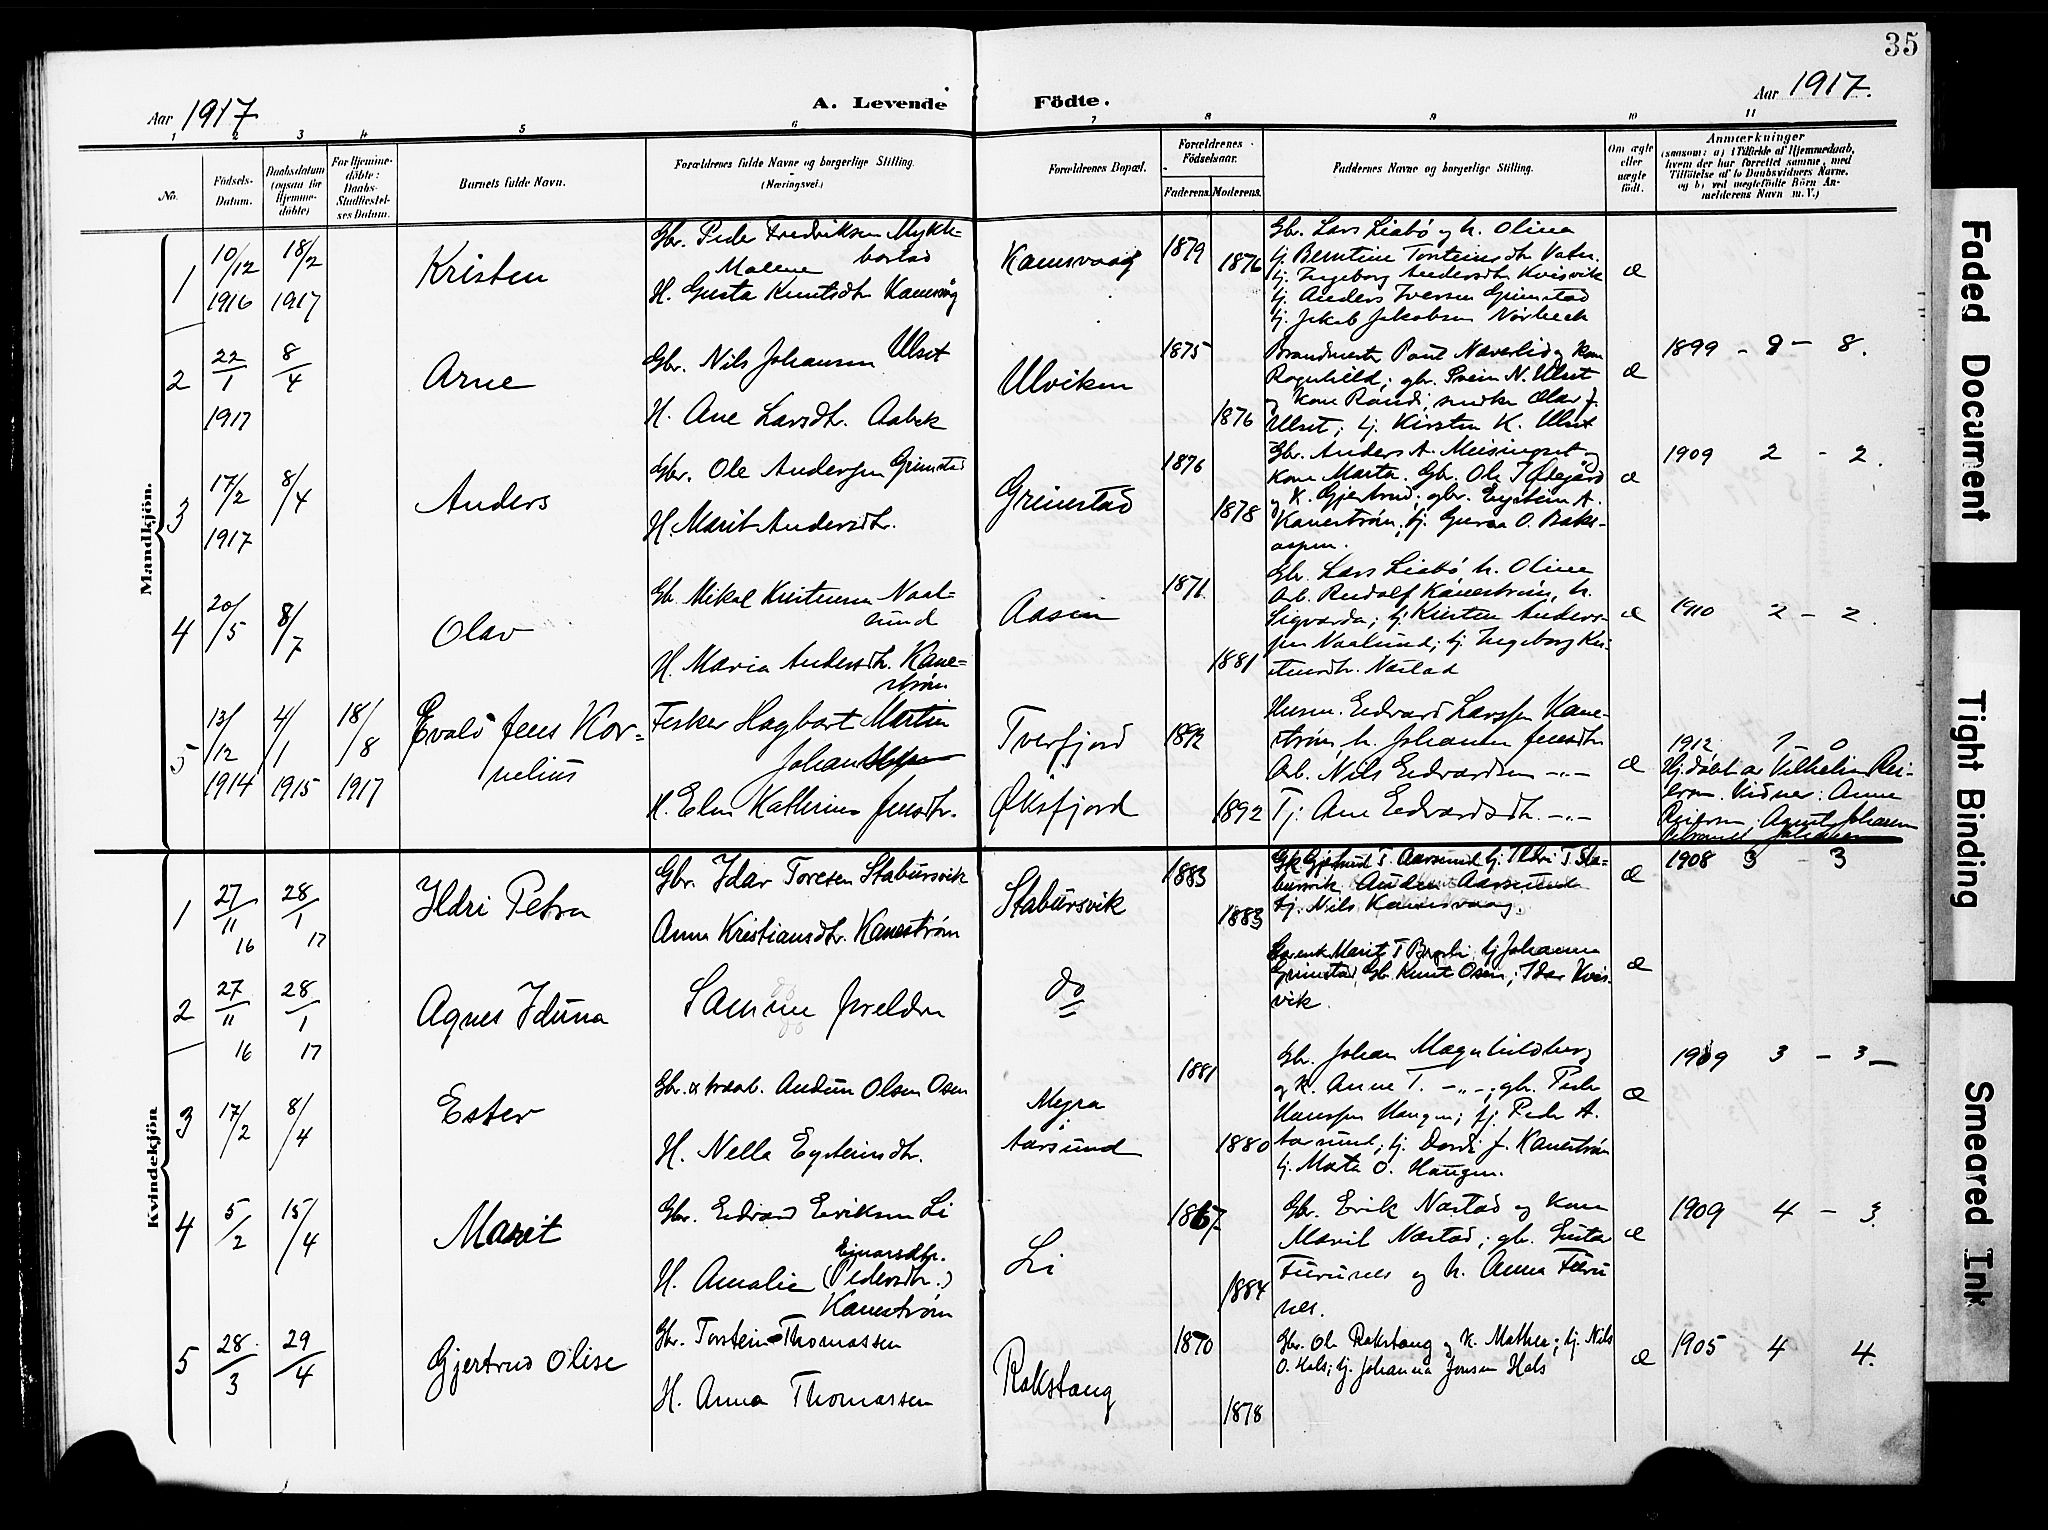 35
Aar 1917
A. Levende
Födte.
Aar 1917.
1 2 3 4 5 6 7 8 9 10 11
No.
Födsels-
Datum.
Daabsdatum
(ogsaa för
Hjemme-
döbte)
For Hjemme-
döbte:
Daabs-
Stadfæstel-
ses Datum.
Barnets fulde Navn.
Forældrenes fulde Navne og borgerlige Stilling.
(Næringsvei.)
Forældrenes Bopæl.
Forældrenes
Födselsaar.
Faderens. Moderens.
Faddernes Navne og borgerlige Stilling.
Om ægte
eller
uægte
födt.
Anmærkninger
(saasom: a) i Tilfælde af Hjemmedaab,
hvem der har forrettet samme, med
Tilföielse af to Daabsvidners Navne,
og b) ved uegtefödte Börn An-
melderens Navn m. V.)
Mandkjön.
1
10/12
1916
18/2
1917
Kristen
Gbr. Peder Fredriksen Mykle-
bostad
Malene
H. Gusta Knutsdtr Kanesvåg
Kanesvaag
1879
1876
Gbr. Lars Liabø og h. Olina
tj. Berntine Torsteinsdtr Vaten
tj. Ingeborg Andersdtr Kvisvik
tj. Anders Iversen Grimstad
tj. Jakob Jakobsen Norbeck
æ
2
22/1
1917
8/4
Arne
Gbr. Nils Johansen Ulset
H. Ane Larsdtr. Aabek
Ulviken
1875
1876
Brandmester Paul Næverlid og kone
Ragnhild; gbr. Svein N. Ulset
og kone Randi, smedke Olav J.
Ulset; tj. Kirsten K. Ulset
æ
1899 - 9 - 8.
3
17/2
1917
8/4
Anders
Gbr. Ole Andersen Grimstad
H. Marit Andersdtr.
Grimstad
1876
1878
Gbr. Anders A. Meisingset og
kone Marta. Gbr. Ole T Ødegård
og K. Gjertrud; gbr. Eystein A.
Kanestrøm; tj. Guraa O. Bake-
aspen.
æ
1909 2 - 2.
4
20/5
8/7
Olav
Gb. Mikal Kristensen Naal-
sund
H. Maria Andersdtr. Kane-
strøm
Aasen
1871
1881
Gbr. Lars Liabø h. Olina
Arb. Rudolf Kanestrøm, h.
Sigvarda; tj. Kirsten Anders-
sen Naalsund; tj. Ingeborg Kri-
stensdtr. Nastad
æ
1910 2 - 2.
5
13/12
1914
4/1
1915
18/8
1917
Evald Jens Kor-
nelius
Fisker Hagbart Martin
Johansen
H. Elen Kathrine Jensdtr.
Tverfjord
Øksfjord
1892
1892
Husm. Edvard Larssen Kane-
strøm h. Johanna Jensdtr
Arb. Nils Edvardsen -"-
Tj. Ane Edvardsdtr. -"-
æ
1912 1 - 0
Hj.døbt av Vilhelm Rei-
ersen. Vidner: Anne
Reiersen. Agnete Johansen
Kvindekjön.
1
27/11
16
28/1
17
Ildri Petra
Gbr. Idar Toresen Stabursvik
Anna Kristiansdtr. Kanestrøm
Stabursvik
1883
1883
Gk Gjertrud T. Aarsund tj. Ildri T. Sta-
bursvik, Anders Aarsund
tj. Nils Kanesvaag.
æ
1908 3 - 3
2
27/11
16
28/1
17
Agnes Iduna
Samme foreldre
do
Marit T. tj Johanna
Grimstad, Gb. Knut Osen; Idar Kvis-
vik.
æ
3
17/2
8/4
Ester
Gbr. & træarb. Audun Olsen Osen
H. Nella Eysteinsdtr.
Myra
Aarsund
1881
1880
Gbr. Johan Magnhildberg
og K. Anne T. -"-; gbr. Peder
Hanssen Haugen; tj. Peder A.
Aarsund; tj. Dordi J. Kanestrøm
tj. Marta O. Haugen.
æ
1909 3 - 3 -
4
5/2
15/4
Marit
Gbr. Edvard Eriksen Li
Ejnarsdtr.
H. Amalie (Pedersdtr.)
Kanestrøm
Li
1867
1884
Gbr. Erik Nastad og kone
Marit Nastad; gbr. Gustav
Furunes og h. Anna Furu
nes.
æ
1909 4 - 3
5
28/3
29/4
Gjertrud Olise
Gbr. Torstein Thomassen
H. Anna Thomassen
Rakstang
1870
1878
Gbr. Ole Rakstang og K. Mathea; tj. Nils
O. Hals; tj. Johanna Jonsen Hals
æ
1905 4 4.
Faded Document
Tight Binding
Smeared Ink